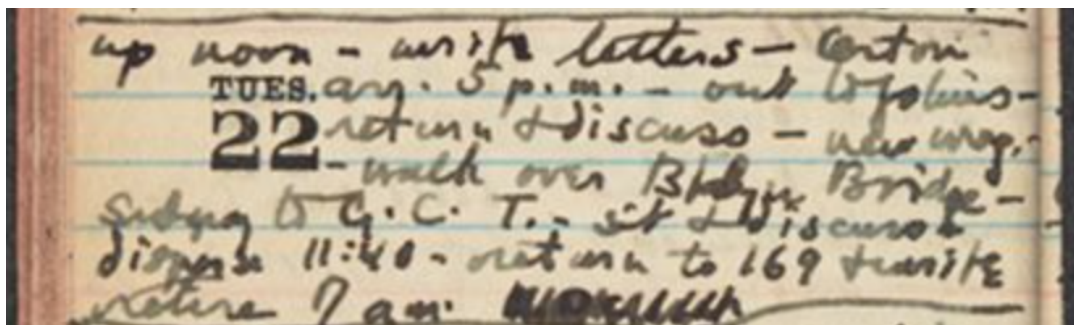 up noon - write letters -
TUES. arr. 5 p.m. - out to
22 return & discuss - new
- walk over Bklyn Bridge -
Subway to G. C. T. - sit & discuss &
disperse 11:40 - return to 169 & write
retire 7 am.